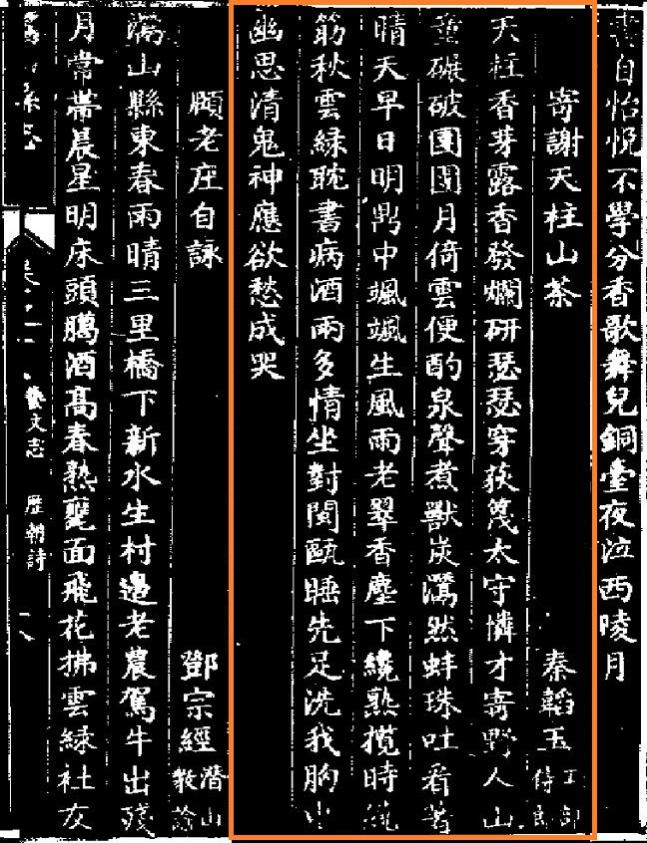 書自怡悅不學分香歌舞兒銅臺夜泣西陵月
寄謝天柱山茶 秦韜玉 工部侍郎
天柱香芽露香發爛研瑟瑟穿荻篾太守憐才寄野人山
童碾破團團月倚雲便酌泉聲煮獸炭潺然蚌珠吐看著
晴天早日明鼎中颯颯生風雨老翠香塵下纔熟攪時繞
筯秋雲綠耽書病酒兩多情坐對閩甌睡先足洗我胸中
幽思清鬼神應欲愁成哭
頤老庄自詠 鄧宗經 潛山教諭
潛山縣東春雨晴三里橋下新水生村邊老農駕牛出殘
月常帶晨星明床頭臈酒髙春熟甕面飛花拂雲綠社友
縣志 卷之 藝文志 歷朝詩 八